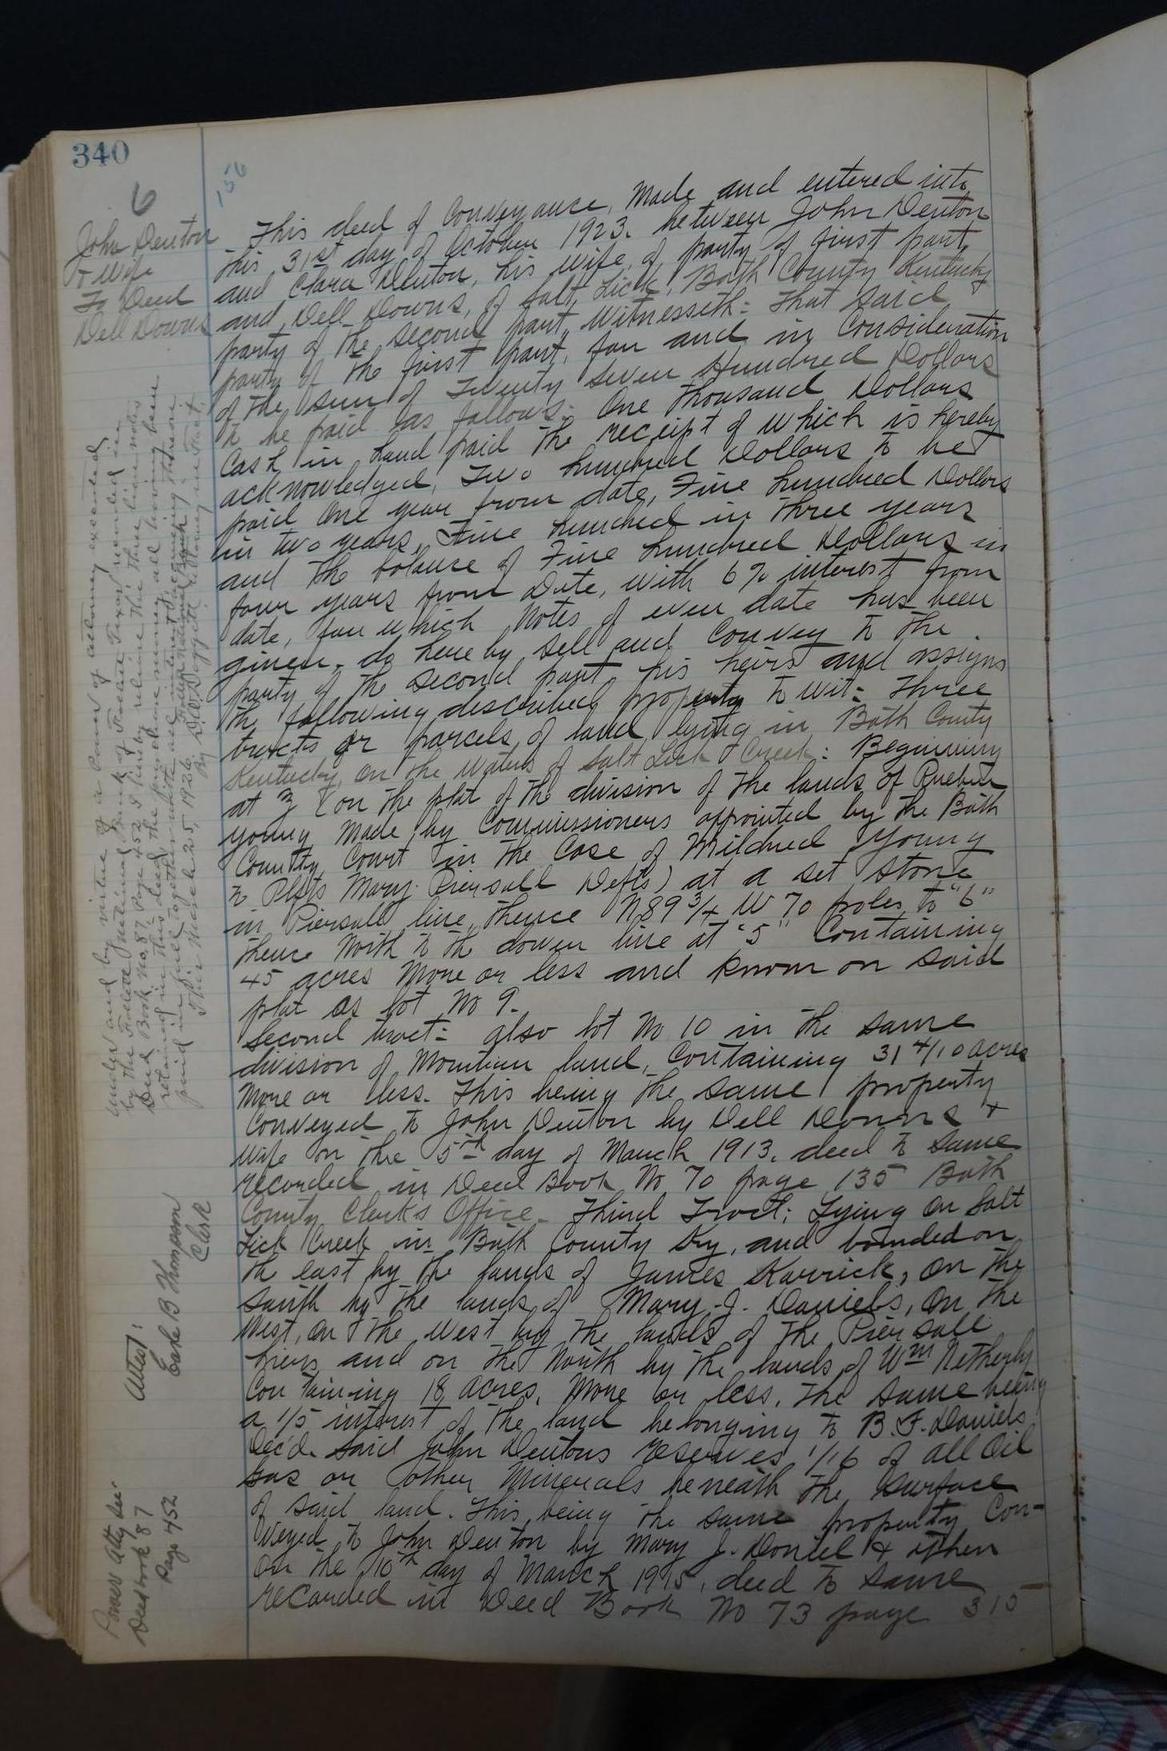 340
6
156
John Denton
& Wife
To Deed
Dell Downs
This deed of Conveyance, Made and entered into
this 31st day of October 1923. between John Denton
and Clara Denton, his wife, of party of first part,
and Dell Downs, of Salt Lick, Bath County Kentucky
party of the second part, Witnesseth: That said
party of the first part, for and in Consideration
of the sum of Twenty Seven Hundred Dollars
to be paid as follows: One Thousand Dollars
Cash in hand paid the receipt of which is hereby
acknowledged, Two hundred Dollars to be
paid One year from date, Five hundred Dollars
in two years, Five hundred in three years
and the balance of Five hundred Dollars in
four years from Date, with 6% interest from
date, for which Notes of even date has been
given, do hereby sell and Convey to the
party of the second part, his heirs and assigns
the following described property to wit: Three
tracts or parcels of land lying in Bath County
Kentucky on the Waters of Salt Lick Creek: Beginning
at (on the plat of the division of the lands of
young Made by Commissioners appointed by the Bath
County Court in the Case of Mildred Young
Plffs Mary Piersall Defts) at a set stone
in Piersall line, thence N 89 3/4 W 70 poles to "6"
thence North to the dower line at "5" Containing
45 acres More or less and known on said
plat as lot No 9.
Second tract: also lot No 10 in the same
division of Mountain land, Containing 31 4/10 acres
More or less. This being the same property
Conveyed to John Denton by Dell Downs &
Wife on the 5th day of March 1913. deed to same
recorded in Deed Book No 70 page 135 Bath
County Clerks Office. Third Tract: Lying on Salt
Lick Creek in Bath County Ky, and bounded on
the east by the lands of James Karrick, on the
South by the lands of Mary J. Daniels, on the
West, on the west by the lands of the Piersall
hiers and on the North by the lands of Wm Netherly
Containing 18 acres, More or less. The same being
a 1/5 interest of the land belonging to B. F. Daniels
Dec'd. Said John Dentons reserves 1/16 of all Oil
Gas or other Minerals beneath the Surface
of said land. This being the same property Con-
veyed to John Denton by Mary J. Daniel & others
on the 10th day of March 1915, deed to same
recorded in Deed Book No 73 page 315
under and by virtue of a power of attorney executed
by the Farmers Bank of recorded in
Deed Book No. 87, Page 452, I hereby release the three lien notes
retained in this deed, the purchase money all having been
paid in full, together with all interest thereon
This March 25, 1926
Attest:
Earle B Thompson
Clerk
Power Atty see
Deed book 87
Page 452